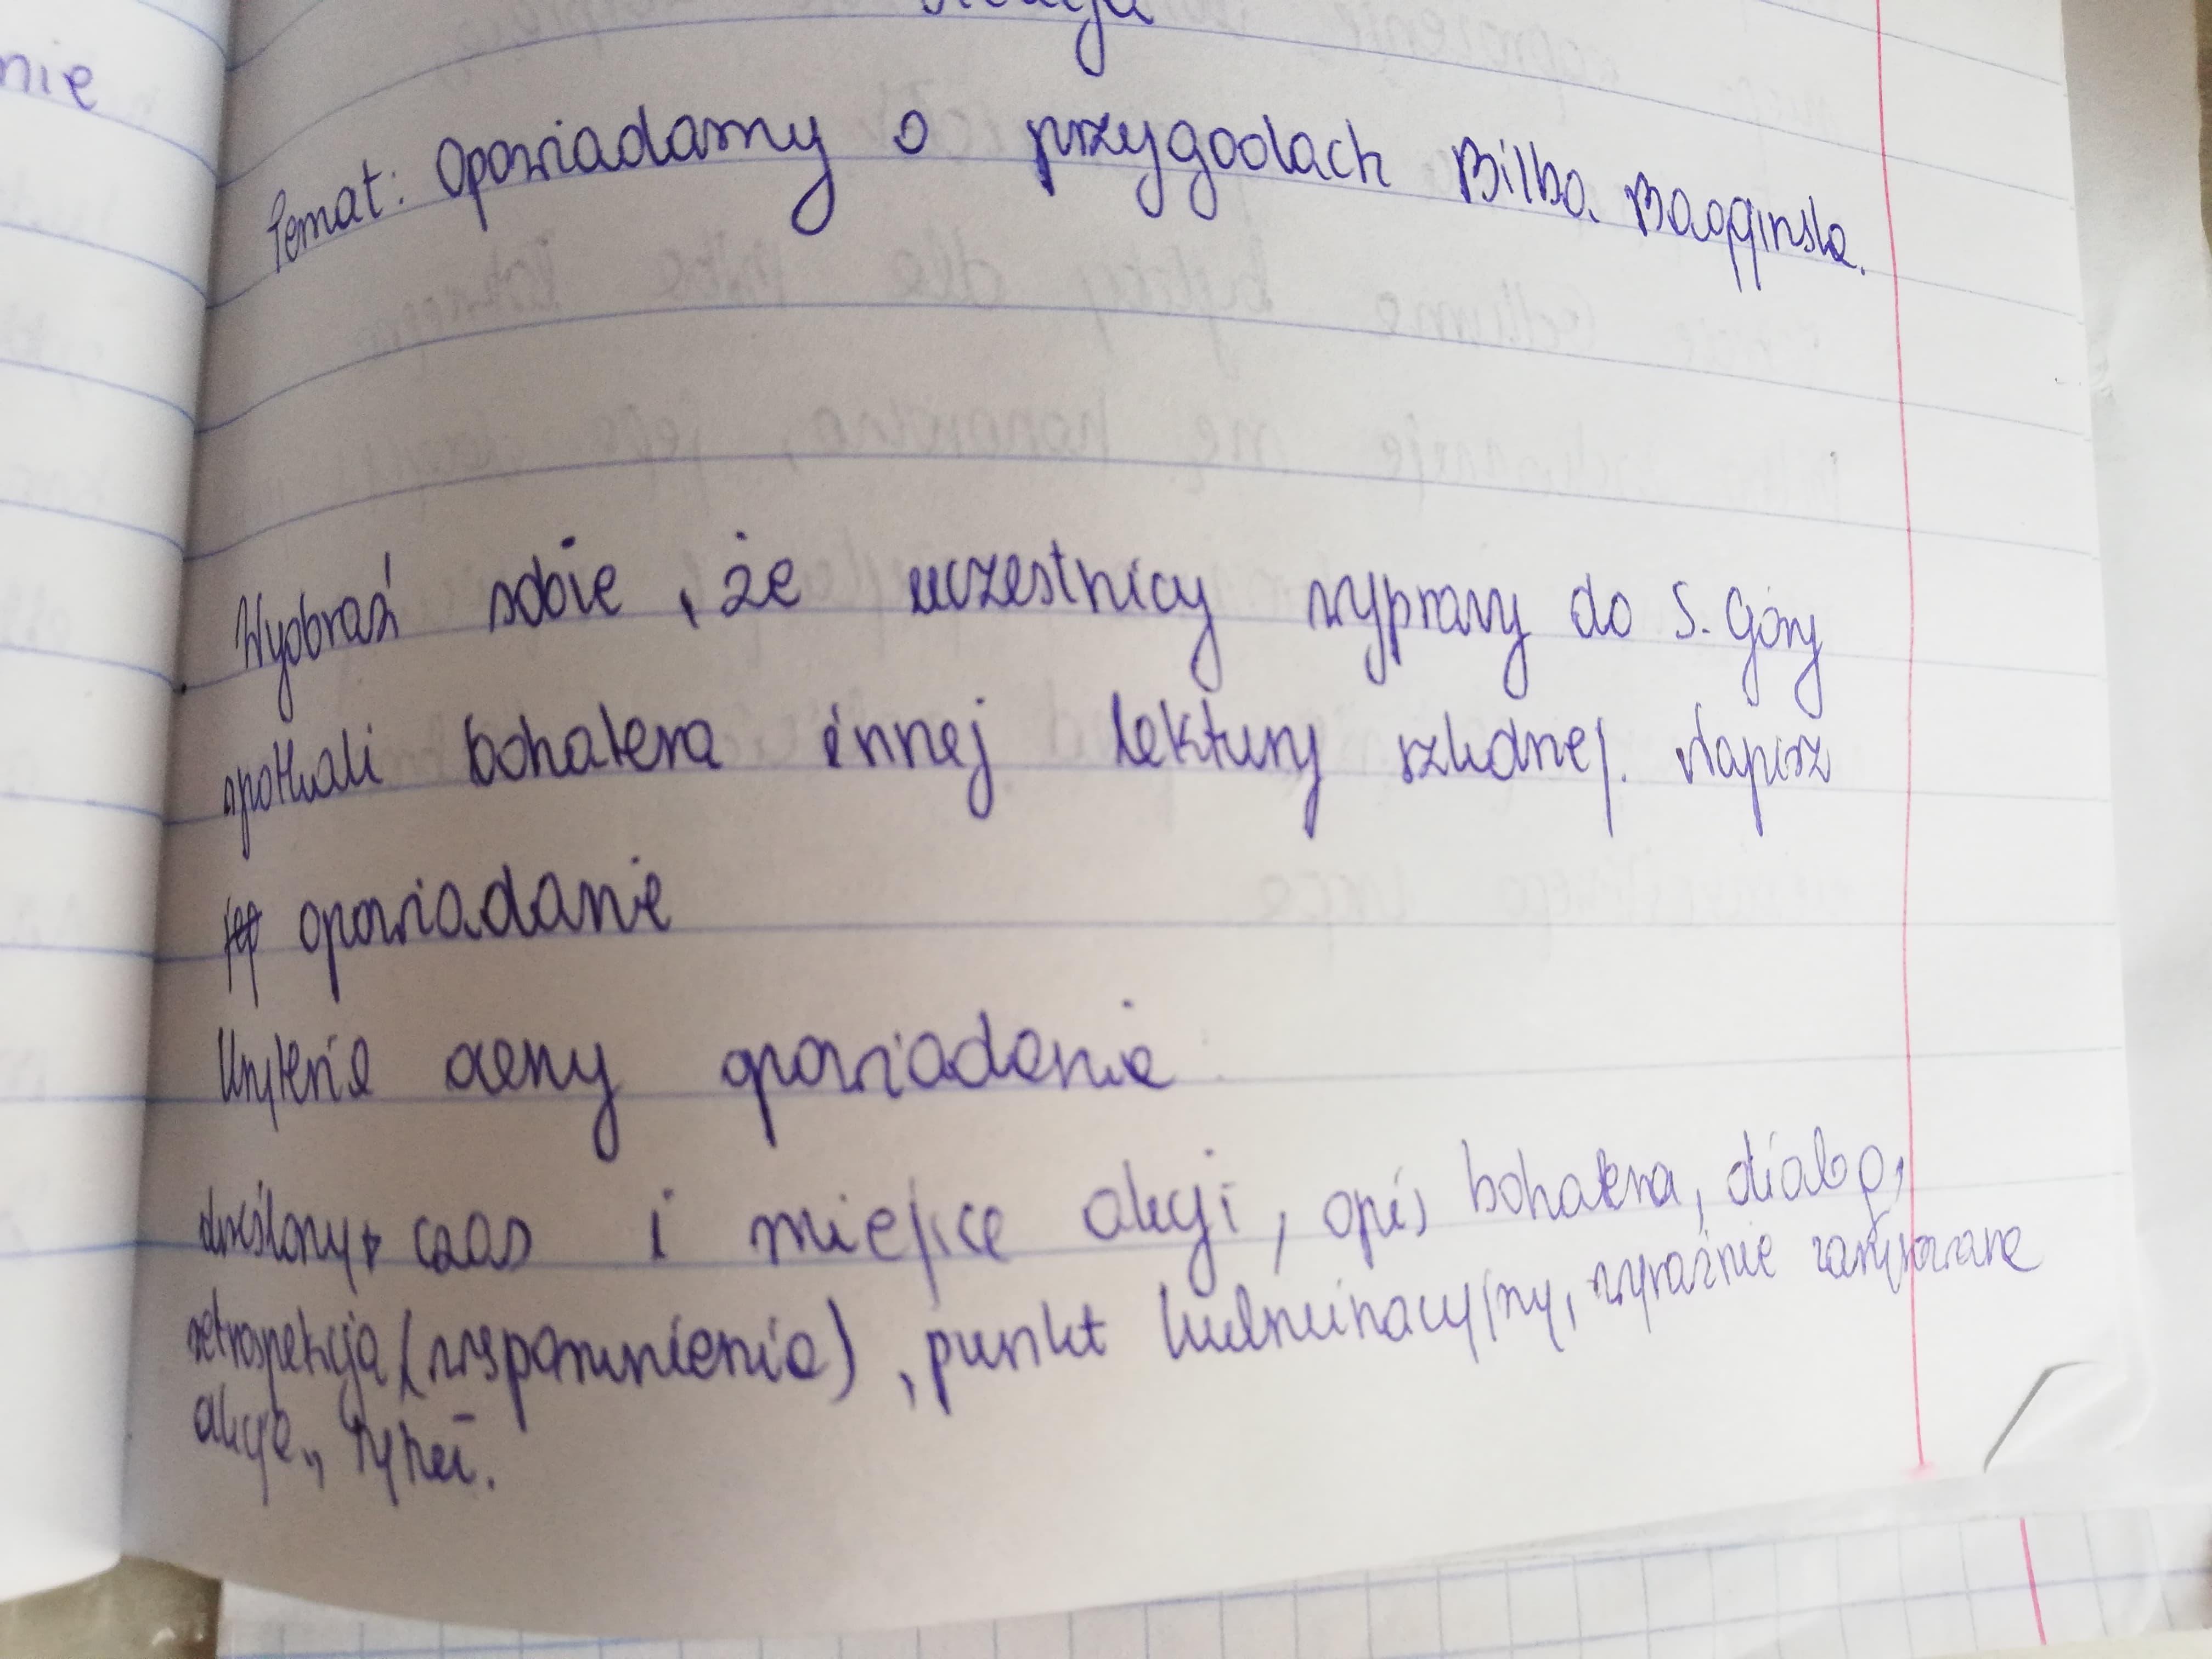 nie
Temat: Opowiadamy o przygodach Bilba Bagginsa.
Wyobraź sobie, że uczestnicy wyprawy do S. Góry
spotkali bohatera innej lektury szkolnej. Napisz
opowiadanie
Kryteria oceny opowiadania
określony czas i miejsce akcji, opis bohatera, dialog,
retrospekcja (wspomnienia), punkt kulminacyjny, wyraźnie zarysowane
akcje, tytuł.